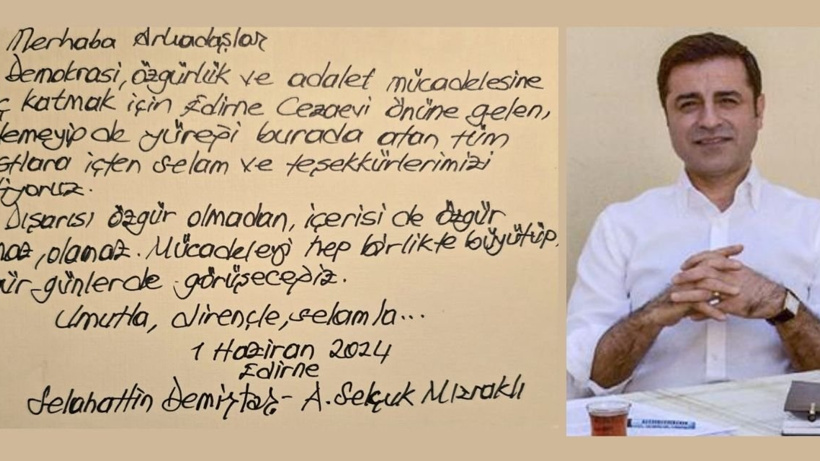 Merhaba Arkadaşlar
Demokrasi, özgürlük ve adalet mücadelesine
katmak için Edirne Cezaevi önüne gelen,
yüreği burada atan tüm
içten selam ve teşekkürlerimizi
Dışarısı özgür olmadan, içerisi de özgür
olamaz. Mücadeleyi hep birlikte büyütüp,
günlerde görüşeceğiz.
Umutla, dirençle, selamla...
1 Haziran 2024
Edirne
Selahattin Demirtaş - A. Selçuk Mızraklı